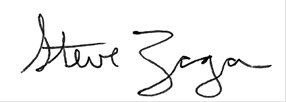 Steve Zaga